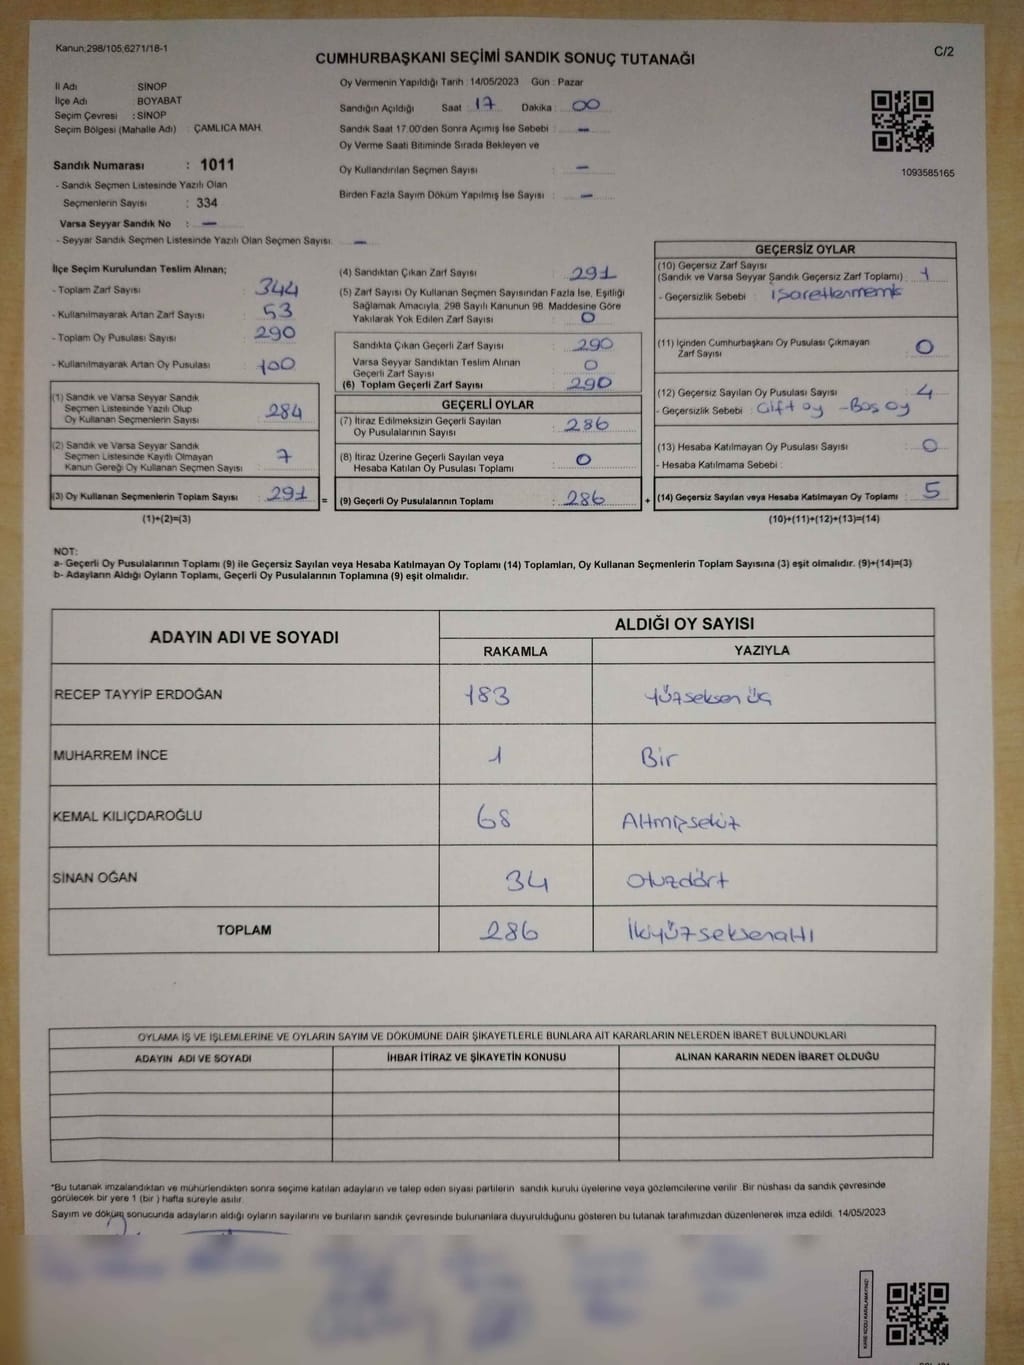 Kanun;298/105;6271/18-1
C/2
CUMHURBAŞKANI SEÇİMİ SANDIK SONUÇ TUTANAĞI
İl Adı : SİNOP
İlçe Adı : BOYABAT
Seçim Çevresi : SİNOP
Seçim Bölgesi (Mahalle Adı) : ÇAMLICA MAH.
Sandık Numarası : 1011
- Sandık Seçmen Listesinde Yazılı Olan
Seçmenlerin Sayısı : 334
Varsa Seyyar Sandık No : –
- Seyyar Sandık Seçmen Listesinde Yazılı Olan Seçmen Sayısı: –
Oy Vermenin Yapıldığı Tarih : 14/05/2023 Gün : Pazar
Sandığın Açıldığı Saat : 17 Dakika : 00
Sandık Saat 17.00'den Sonra Açımış İse Sebebi : –
Oy Verme Saati Bitiminde Sırada Bekleyen ve
Oy Kullandırılan Seçmen Sayısı : –
Birden Fazla Sayım Döküm Yapılmış İse Sayısı : –
1093585165
İlçe Seçim Kurulundan Teslim Alınan;
- Toplam Zarf Sayısı : 344
- Kullanılmayarak Artan Zarf Sayısı : 53
- Toplam Oy Pusulası Sayısı : 290
- Kullanılmayarak Artan Oy Pusulası : 100
(1) Sandık ve Varsa Seyyar Sandık
Seçmen Listesinde Yazılı Olup
Oy Kullanan Seçmenlerin Sayısı : 284
(2) Sandık ve Varsa Seyyar Sandık
Seçmen Listesinde Kayıtlı Olmayan
Kanun Gereği Oy Kullanan Seçmen Sayısı : 7
(3) Oy Kullanan Seçmenlerin Toplam Sayısı : 291 =
(1)+(2)=(3)
(4) Sandıktan Çıkan Zarf Sayısı : 291
(5) Zarf Sayısı Oy Kullanan Seçmen Sayısından Fazla İse, Eşitliği
Sağlamak Amacıyla, 298 Sayılı Kanunun 98. Maddesine Göre
Yakılarak Yok Edilen Zarf Sayısı : 0
Sandıkta Çıkan Geçerli Zarf Sayısı : 290
Varsa Seyyar Sandıktan Teslim Alınan
Geçerli Zarf Sayısı : 0
(6) Toplam Geçerli Zarf Sayısı : 290
GEÇERLİ OYLAR
(7) İtiraz Edilmeksizin Geçerli Sayılan
Oy Pusulalarının Sayısı : 286
(8) İtiraz Üzerine Geçerli Sayılan veya
Hesaba Katılan Oy Pusulası Toplamı : 0
(9) Geçerli Oy Pusulalarının Toplamı : 286 +
GEÇERSİZ OYLAR
(10) Geçersiz Zarf Sayısı
(Sandık ve Varsa Seyyar Sandık Geçersiz Zarf Toplamı) : 1
- Geçersizlik Sebebi : işaretlenmemiş
(11) İçinden Cumhurbaşkanı Oy Pusulası Çıkmayan
Zarf Sayısı : 0
(12) Geçersiz Sayılan Oy Pusulası Sayısı : 4
- Geçersizlik Sebebi : Çift oy - Boş oy
(13) Hesaba Katılmayan Oy Pusulası Sayısı : 0
- Hesaba Katılmama Sebebi :
(14) Geçersiz Sayılan veya Hesaba Katılmayan Oy Toplamı : 5
(10)+(11)+(12)+(13)=(14)
NOT:
a- Geçerli Oy Pusulalarının Toplamı (9) ile Geçersiz Sayılan veya Hesaba Katılmayan Oy Toplamı (14) Toplamları, Oy Kullanan Seçmenlerin Toplam Sayısına (3) eşit olmalıdır. (9)+(14)=(3)
b- Adayların Aldığı Oyların Toplamı, Geçerli Oy Pusulalarının Toplamına (9) eşit olmalıdır.
ADAYIN ADI VE SOYADI ALDIĞI OY SAYISI
RAKAMLA YAZIYLA
RECEP TAYYİP ERDOĞAN 183 Yüzseksen üç
MUHARREM İNCE 1 Bir
KEMAL KILIÇDAROĞLU 68 Altmışsekiz
SİNAN OĞAN 34 Otuzdört
TOPLAM 286 İkiyüzseksenaltı
OYLAMA İŞ VE İŞLEMLERİNE VE OYLARIN SAYIM VE DÖKÜMÜNE DAİR ŞİKAYETLERLE BUNLARA AİT KARARLARIN NELERDEN İBARET BULUNDUKLARI
ADAYIN ADI VE SOYADI İHBAR İTİRAZ VE ŞİKAYETİN KONUSU ALINAN KARARIN NEDEN İBARET OLDUĞU
*Bu tutanak imzalandıktan ve mühürlendikten sonra seçime katılan adayların ve talep eden siyasi partilerin sandık kurulu üyelerine veya gözlemcilerine verilir. Bir nüshası da sandık çevresinde
görülecek bir yere 1 (bir ) hafta süreyle asılır.
Sayım ve döküm sonucunda adayların aldığı oyların sayılarını ve bunların sandık çevresinde bulunanlara duyurulduğunu gösteren bu tutanak tarafımızdan düzenlenerek imza edildi. 14/05/2023